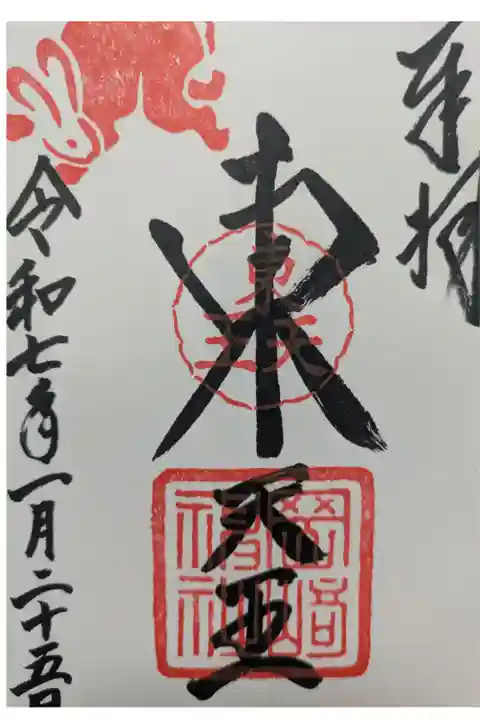 奉拝
東天王
東天王
岡崎神社
令和七年一月二十五日